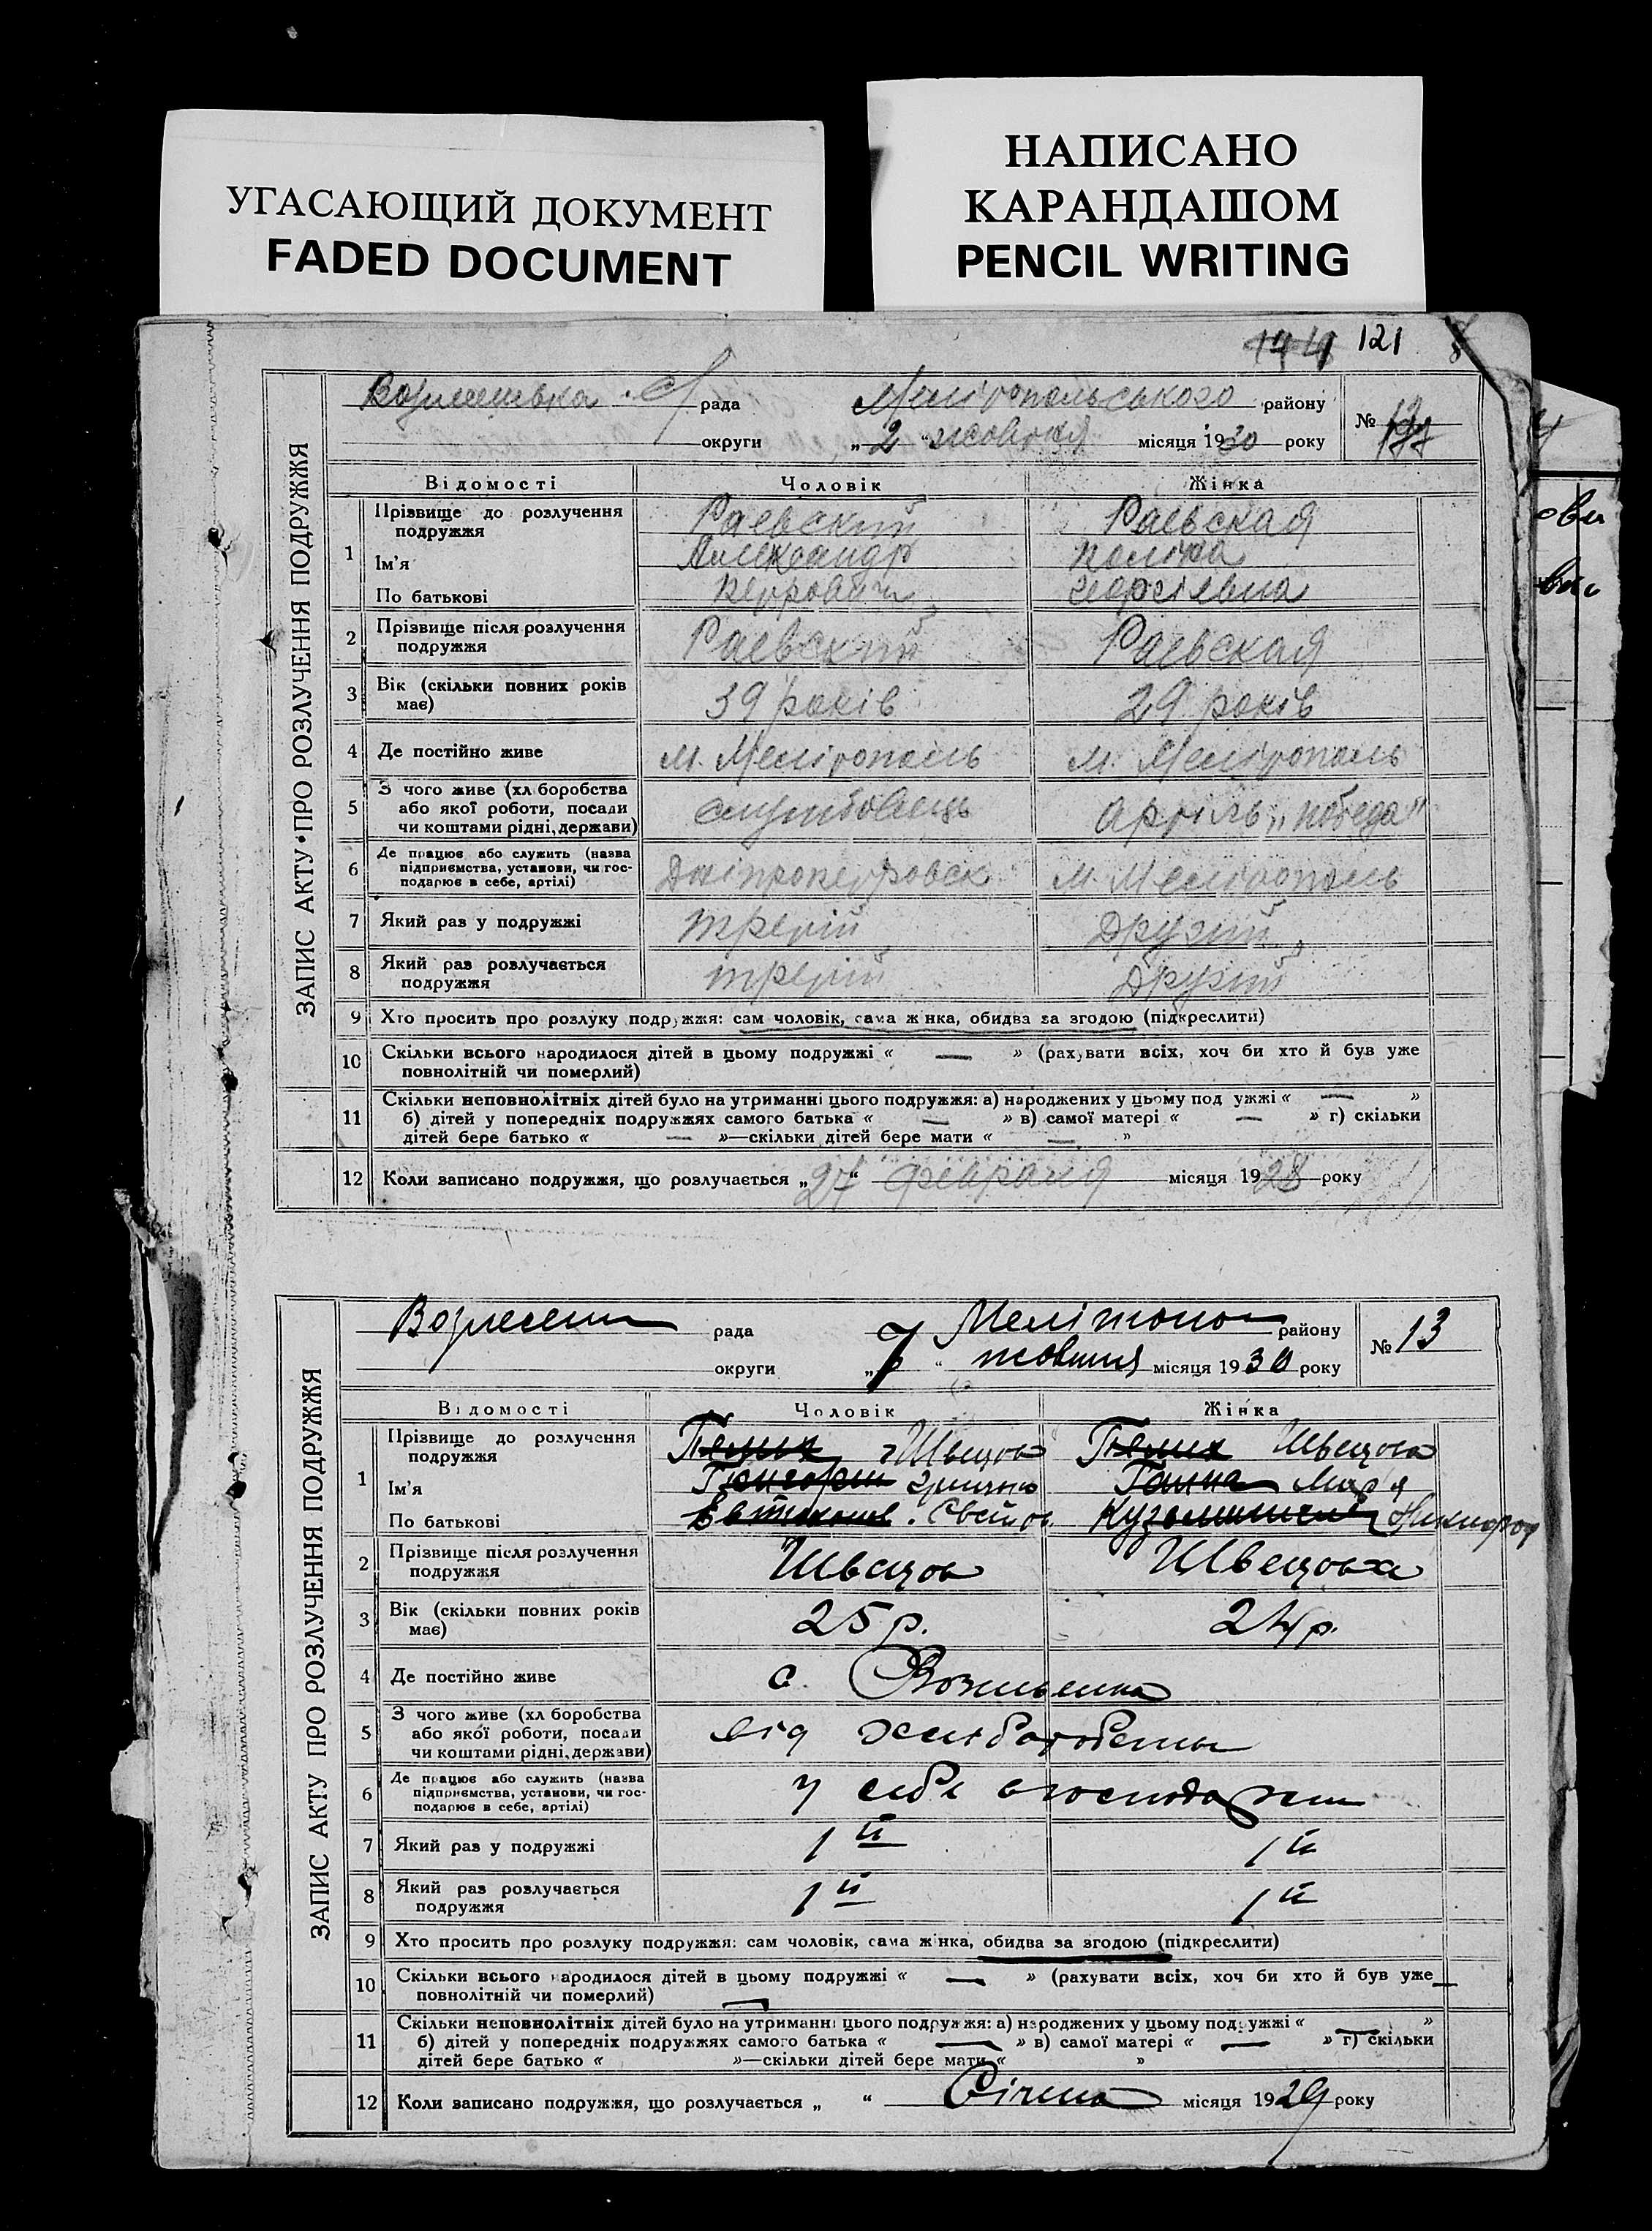 УГАСАЮЩИЙ ДОКУМЕНТ
FADED DOCUMENT
НАПИСАНО
КАРАНДАШОМ
PENCIL WRITING
121
ЗАПИС АКТУ ПРО РОЗЛУЧЕННЯ ПОДРУЖЖЯ
рада Мелітопольського району №
округи „ 2 “ жовтня місяця 1930 року
Відомості Чоловік Жінка
1 Прізвище до розлучення подружжя Раевский Раевская
Ім'я Александр Поліна
По батькові Петрович Георгіевна
2 Прізвище після розлучення подружжя Раевский Раевская
3 Вік (скільки повних років має) 39 років 29 років
4 Де постійно живе м. Мелітополь м. Мелітополь
5 З чого живе (хл боробства або якої роботи, посади чи коштами рідні, держави) службовець Артіль „победа"
6 Де працює або служить (назва підприємства, установи, чи господарює в себе, артілі) Дніпропетровск м. Мелітополь
7 Який раз у подружжі третій Другий
8 Який раз розлучається подружжя третій Другий
9 Хто просить про розлуку подружжя: сам чоловік, сама жінка, обидва за згодою (підкреслити)
10 Скільки всього народилося дітей в цьому подружжі « — » (рахувати всіх, хоч би хто й був уже
повнолітній чи померлий)
11 Скільки неповнолітніх дітей було на утриманні цього подружжя: а) народжених у цьому подружжі « — »
б) дітей у попередніх подружжях самого батька « — » в) самої матері « — » г) скільки
дітей бере батько « — »—скільки дітей бере мати « — »
12 Коли записано подружжя, що розлучається „ 27 “ февраля місяця 1928 року
ЗАПИС АКТУ ПРО РОЗЛУЧЕННЯ ПОДРУЖЖЯ
Вознесен рада Мелітопо району № 13
округи „ 7 “ жовтня місяця 1930 року
Відомості Чоловік Жінка
1 Прізвище до розлучення подружжя Швецов Швецова
Ім'я Марія
По батькові Никифор
2 Прізвище після розлучення подружжя Швецов Швецова
3 Вік (скільки повних років має) 25 р. 24 р.
4 Де постійно живе с.
5 З чого живе (хл боробства або якої роботи, посади чи коштами рідні, держави) від
6 Де працює або служить (назва підприємства, установи, чи господарює в себе, артілі) у себе в господарстві
7 Який раз у подружжі 1й 1й
8 Який раз розлучається подружжя 1й 1й
9 Хто просить про розлуку подружжя: сам чоловік, сама жінка, обидва за згодою (підкреслити)
10 Скільки всього народилося дітей в цьому подружжі « — » (рахувати всіх, хоч би хто й був уже
повнолітній чи померлий)
11 Скільки неповнолітніх дітей було на утриманні цього подружжя: а) народжених у цьому подружжі « — »
б) дітей у попередніх подружжях самого батька « — » в) самої матері « — » г) скільки
дітей бере батько « »—скільки дітей бере мати « »
12 Коли записано подружжя, що розлучається „ “ Січня місяця 1929 року